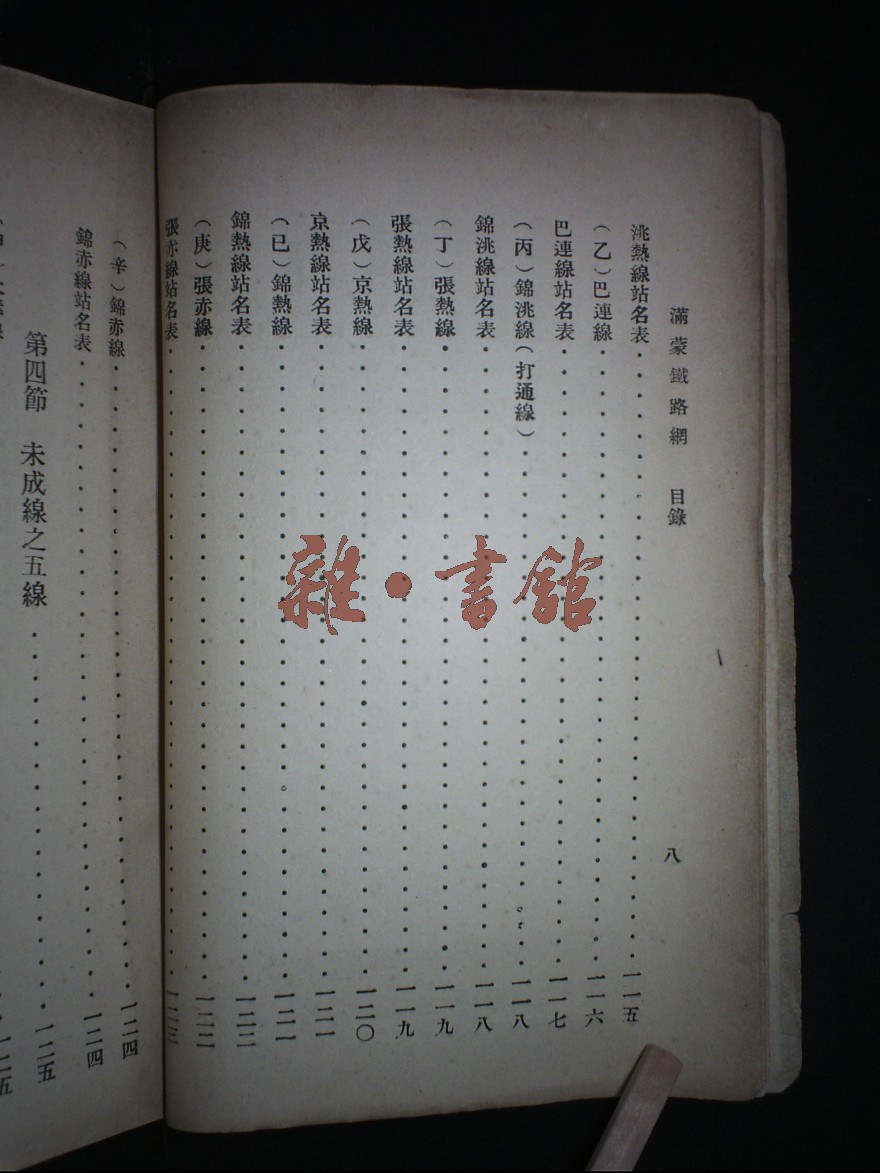 滿蒙鐵路網 目錄 八
洮熱線站名表 一一五
（乙）巴連線 一一六
巴連線站名表 一一七
（丙）錦洮線（打通線） 一一八
錦洮線站名表 一一八
（丁）張熱線 一一九
張熱線站名表 一一九
（戊）京熱線 一二〇
京熱線站名表 一二一
（已）錦熱線 一二一
錦熱線站名表 一二二
（庚）張赤線 一二二
張赤線站名表 一二三
（辛）錦赤線 一二四
錦赤線站名表 一二四
第四節 未成線之五線 一二五
一二五
雜·書館